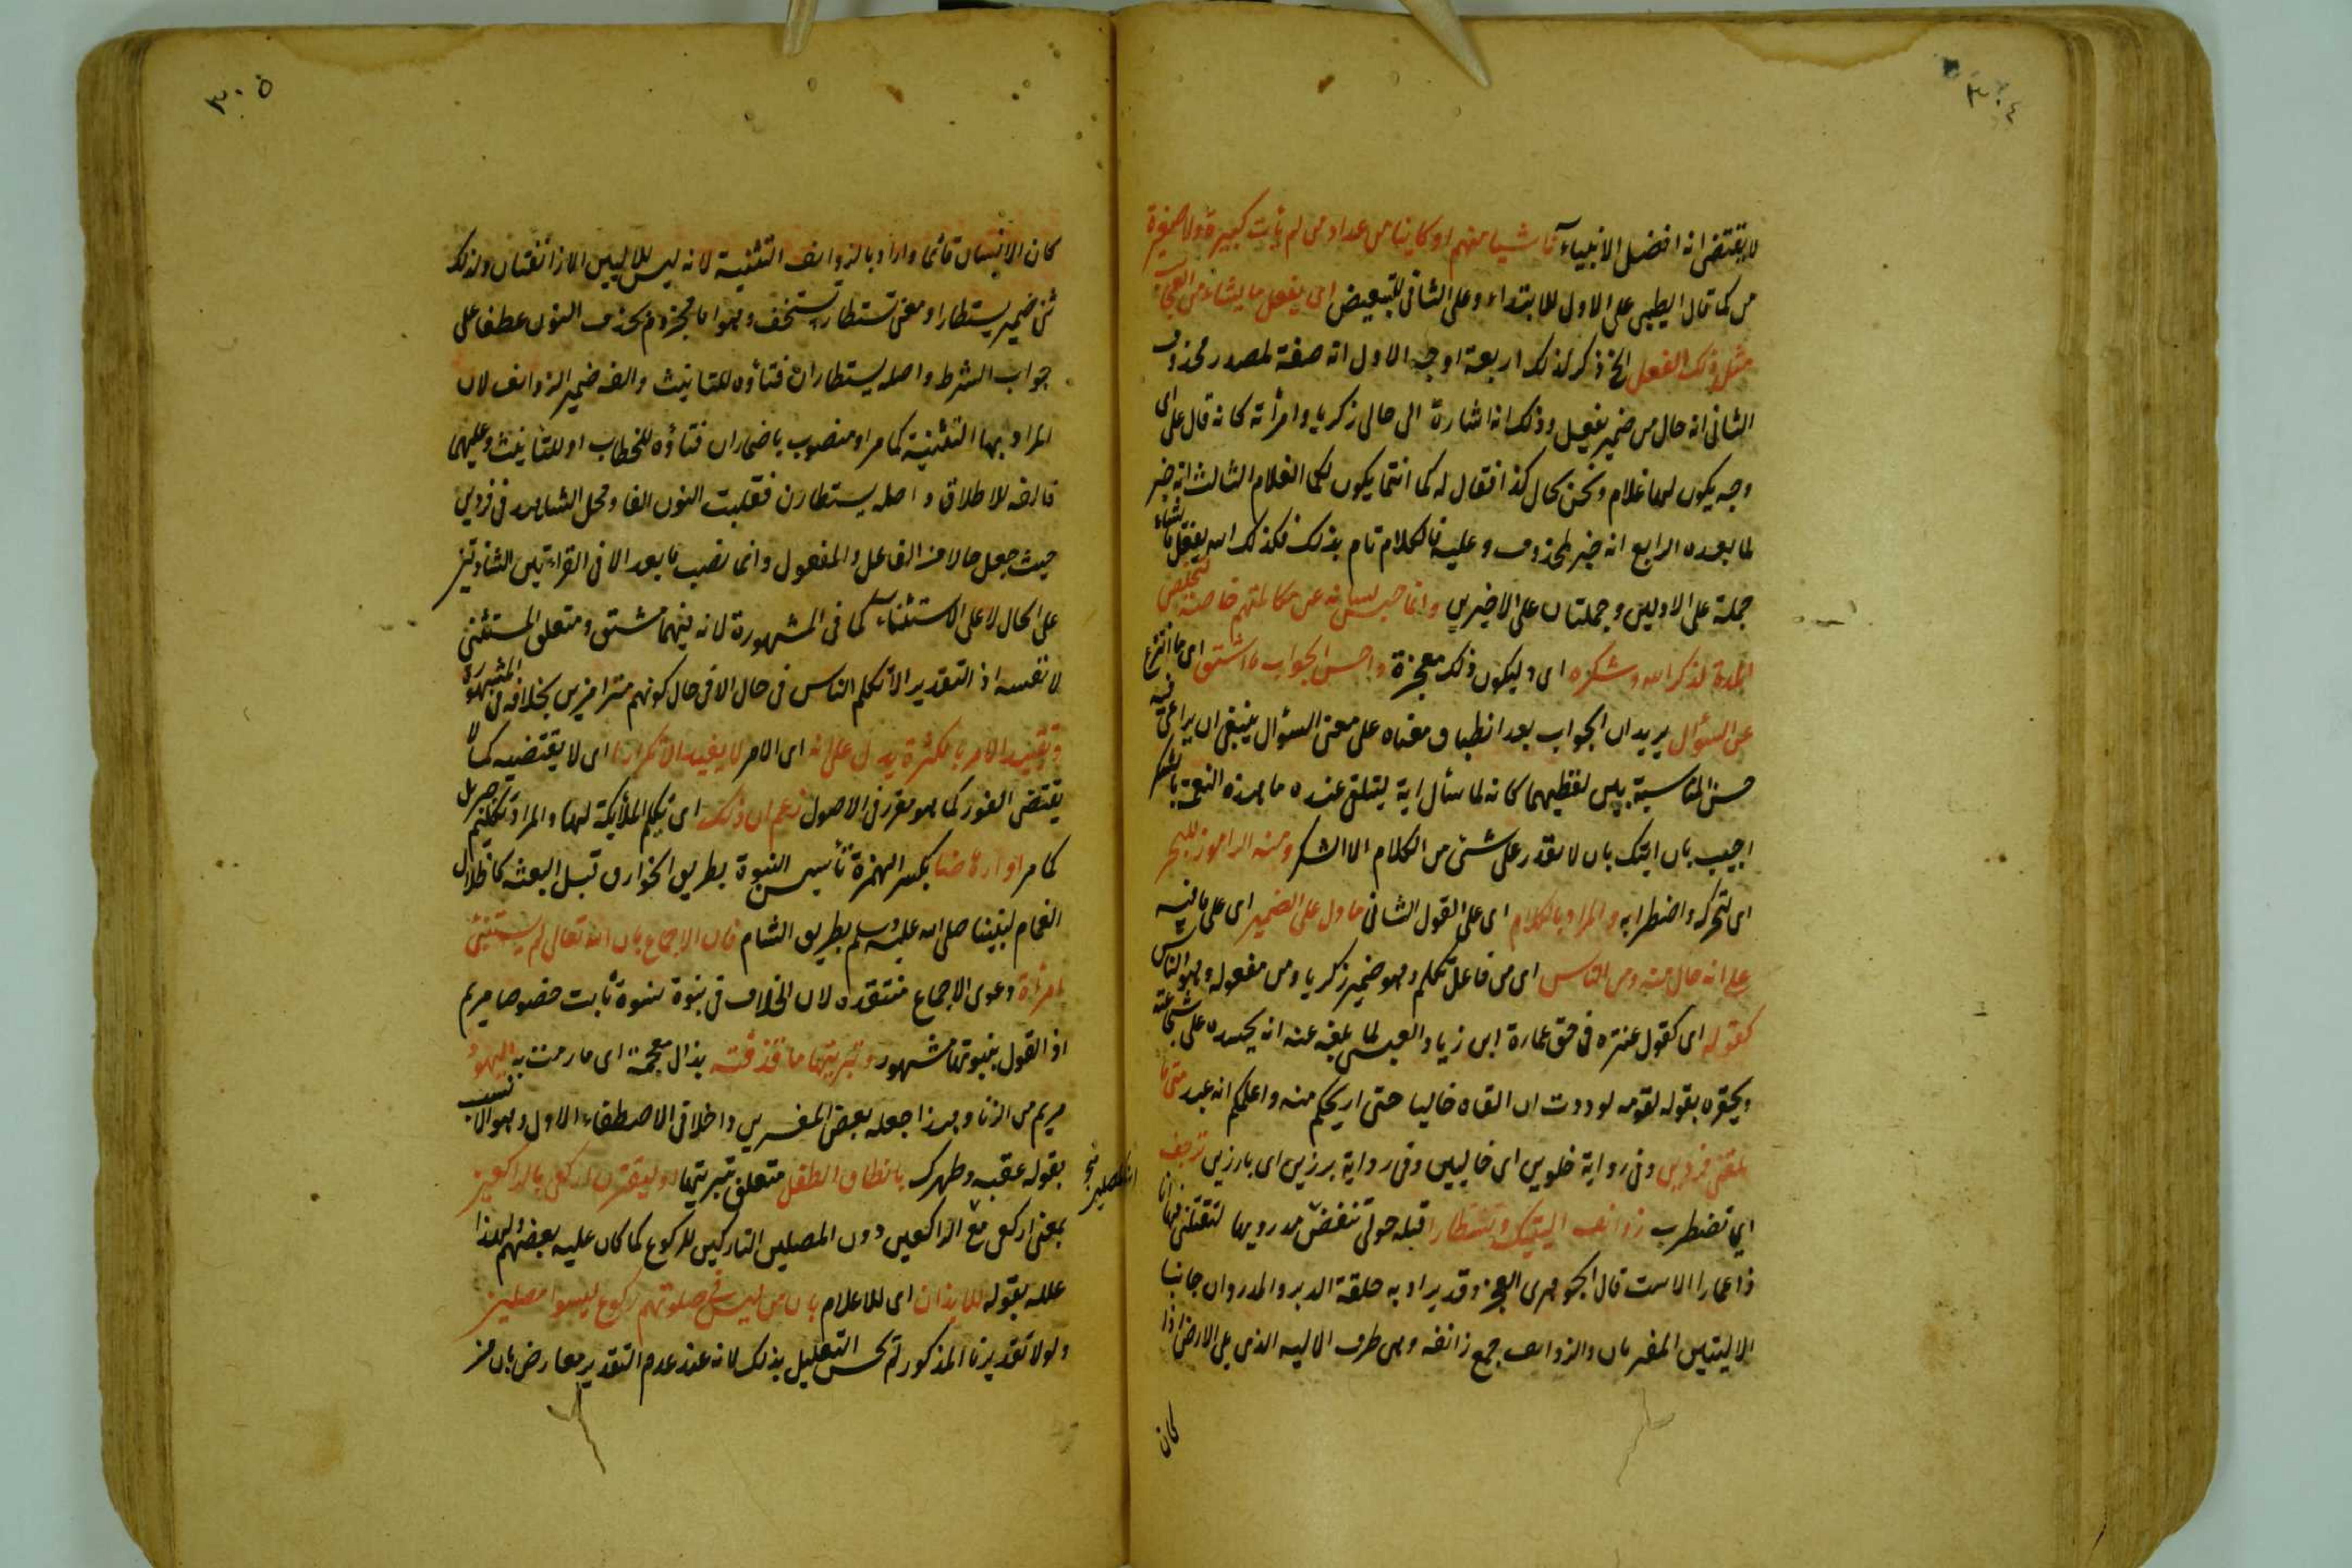 ٣٠٤
لا يقتضى انه افضل الانبياء ناشيا منهم او كاينا من عداد من لم يأت كبيرة ولا صغيرة
من كما قال الطيبى على الاول للابتداء وعلى الثانى للتبعيض اى يفعل ما يشاء من العجائب
مثل ذلك الفعل الخ ذكر لذلك اربعة اوجه الاول انه صفة لمصدر محذوف
الثانى انه حال من ضمير يفعل وذلك انه اشارة الى حال زكريا وامرأته كانه قال على اى
وجه يكون لهما غلام ونحن بحال كذا فقال له كما انتما يكون لكما الغلام الثالث انه خبر
لما بعده الرابع انه خبر لمحذوف وعليه فالكلام تام بذلك فكذلك الله يفعل ما يشاء
جملة على الاولين وجملتان على الاخيرين وانما حبس لسانه عن مكالمتهم خاصة لتخلص
المدة لذكر الله وشكره اى وليكون ذلك معجزة واحسن الجواب ما اشتق اى ما انتزع
عن السؤال يريد ان الجواب بعد انطباق معناه على معنى السؤال ينبغى ان يراعى فيه
حسن المناسبة بين لفظيهما كانه لما سأل اية ليتلقى عنده ما هذه النعمة بالشكر
اجيب بان ايتك بان لا تقدر على شئ من الكلام الا الشكر ومنه الراموز للبحر
اى لتحركه واضطرابه والمراد بالكلام اى على القول الثانى ما دل على الضمير اى على ما فيه
على انه حال منه ومن الناس اى من فاعل تكلم وهو ضمير زكريا ومن مفعوله وهو الناس
كقوله اى كقول عنترة فى حق عمارة ابن زياد العبسى لما بلغه عنه انه يحسده على شجاعته
ويحقره بقوله لقومه لوددت ان القاه خاليا حتى اريحكم منه واعلمكم انه عبد متى ما
تلقنى فردين وفى رواية خلوين اى خاليين وفى رواية برزين اى بارزين ترجف
اي تضطرب روانف اليتيك وتستطارا قبله حولى تنفض مدرويها لتقتلنى فها انا
ذا عمارا الاست قال الجوهرى العجز وقد يراد به حلقة الدبر والمدروان جانبا
الاليتين المفرمان والروانف جمع رانفه وهى طرف الاليه الذى يلى الارض اذا
كان
٣٠٥
كان الانسان قائما واراد بالروانف التثنية لانه ليس للاليين الا رانفتان ولذلك
ثنى ضمير يستطارا ومعنى تستطار تستخف وهو اما مجزوم بحذف النون عطفا على
جواب الشرط واصله يستطاران فتاؤه للتانيث والفه ضمير الروانف لان
المراد بها التثنية كما مر او منصوب باضمار ان فتاؤه للخطاب او للتأنيث وعليهما
فالفه للاطلاق واصله يستطارن فقلبت النون الفا ومحل الشاهد فى فردين
حيث جعل حالا من الفاعل والمفعول وانما نصب ما بعد الا فى القراءتين الشاذتين
على الحال لا على الاستثناء كما فى المشهورة لانه فيهما مشتق ومتعلق المستثنى
لا نفسه اذ التقدير الا تكلم الناس فى حال الا فى حال كونهم مترامزين بخلافه فى المشهورة
وتقييد الامر بالكثرة يدل على انه اى الامر لا يفيد التكرار اى لا يقتضيه كما لا
يقتضى الفور كما هو مقرر فى الاصول زعم ان ذلك اى تكلم الملائكة لها والمراد تكلم جبريل
كما مر او ارهاصا بكسر الهمزة تأسيس النبوة بطريق الخوارق قبل البعثه كاظلال
الغمام لنبينا صلى الله عليه وسلم بطريق الشام فان الاجماع بان الله تعالى لم يستنبئ
امرأة دعوى الاجماع منتقده لان الخلاف فى نبوة نسوة ثابت خصوصا مريم
اذ القول بنبوتها مشهور وتبريتها ما قذفته بذال معجمة اى ما رمت به اليهود
مريم من الزنا وهذا جعله بعض المفسرين داخلا فى الاصطفاء الاول وهو الانسب
بقوله عقبه وطهرك بانطاق الطفل متعلق بتبريتها او ليقترن اركعى بالراكعين
بمعنى اركعى مع الراكعين دون المصلين التاركين للركوع كما كان عليه بعضهم ولهذا
علله بقوله للايذان اى للاعلام بان من ليس فى صلوتهم ركوع ليسوا مصلين
ولولا تقديرنا المذكور لم يحسن التعليل بذلك لانه عند عدم التقدير معارض بان من